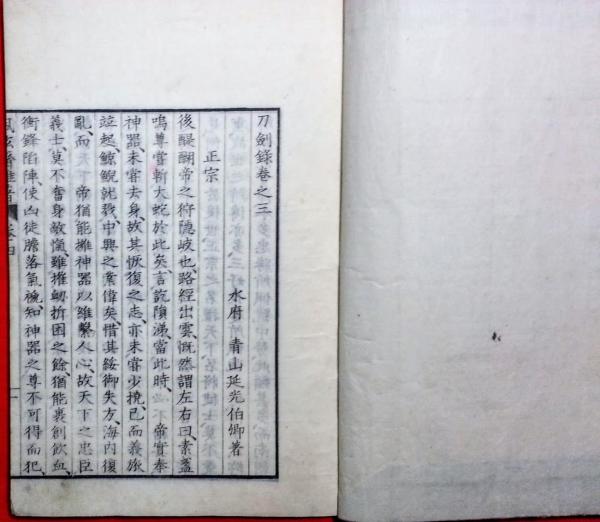 刀劍錄卷之三
水府 青山延光伯卿著
正宗
後醍醐帝之狩隱岐也、路經出雲、慨然謂左右曰、素盞
嗚尊嘗斬大蛇於此矣、言訖隕涕、當此時、帝實奉
神器、未嘗去身、故其恢復之志、亦未嘗少撓、已而義旅
竝起、鯨鯢就戮、中興之業偉矣、惜其綏御失方、海內復
亂、而天下帝猶能擁神器以維繫人心、故天下之忠臣
義士、莫不奮身敵愾、雖摧衄折困之餘、猶能裹創飲血、
衝鋒陷陣、使凶徒膽落氣褫、知神器之尊不可得而犯、